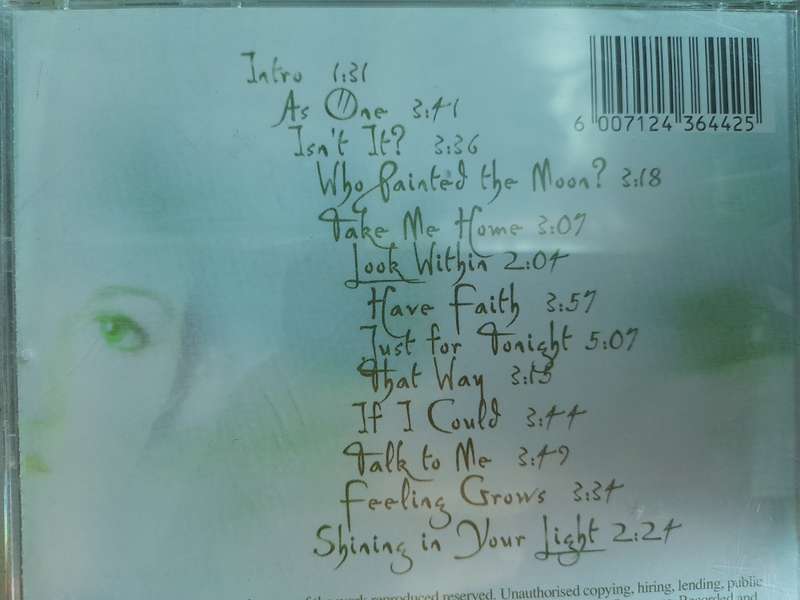 Intro 1:31
As One 3:41
Isn't It? 3:36
Who Painted the Moon? 3:18
Take Me Home 3:07
Look Within 2:04
Have Faith 3:57
Just for Tonight 5:07
That Way 3:15
If I Could 3:44
Talk to Me 3:49
Feeling Grows 3:34
Shining in Your Light 2:24
6 007124 364425
reproduced reserved. Unauthorised copying, hiring, lending, public
Recorded and